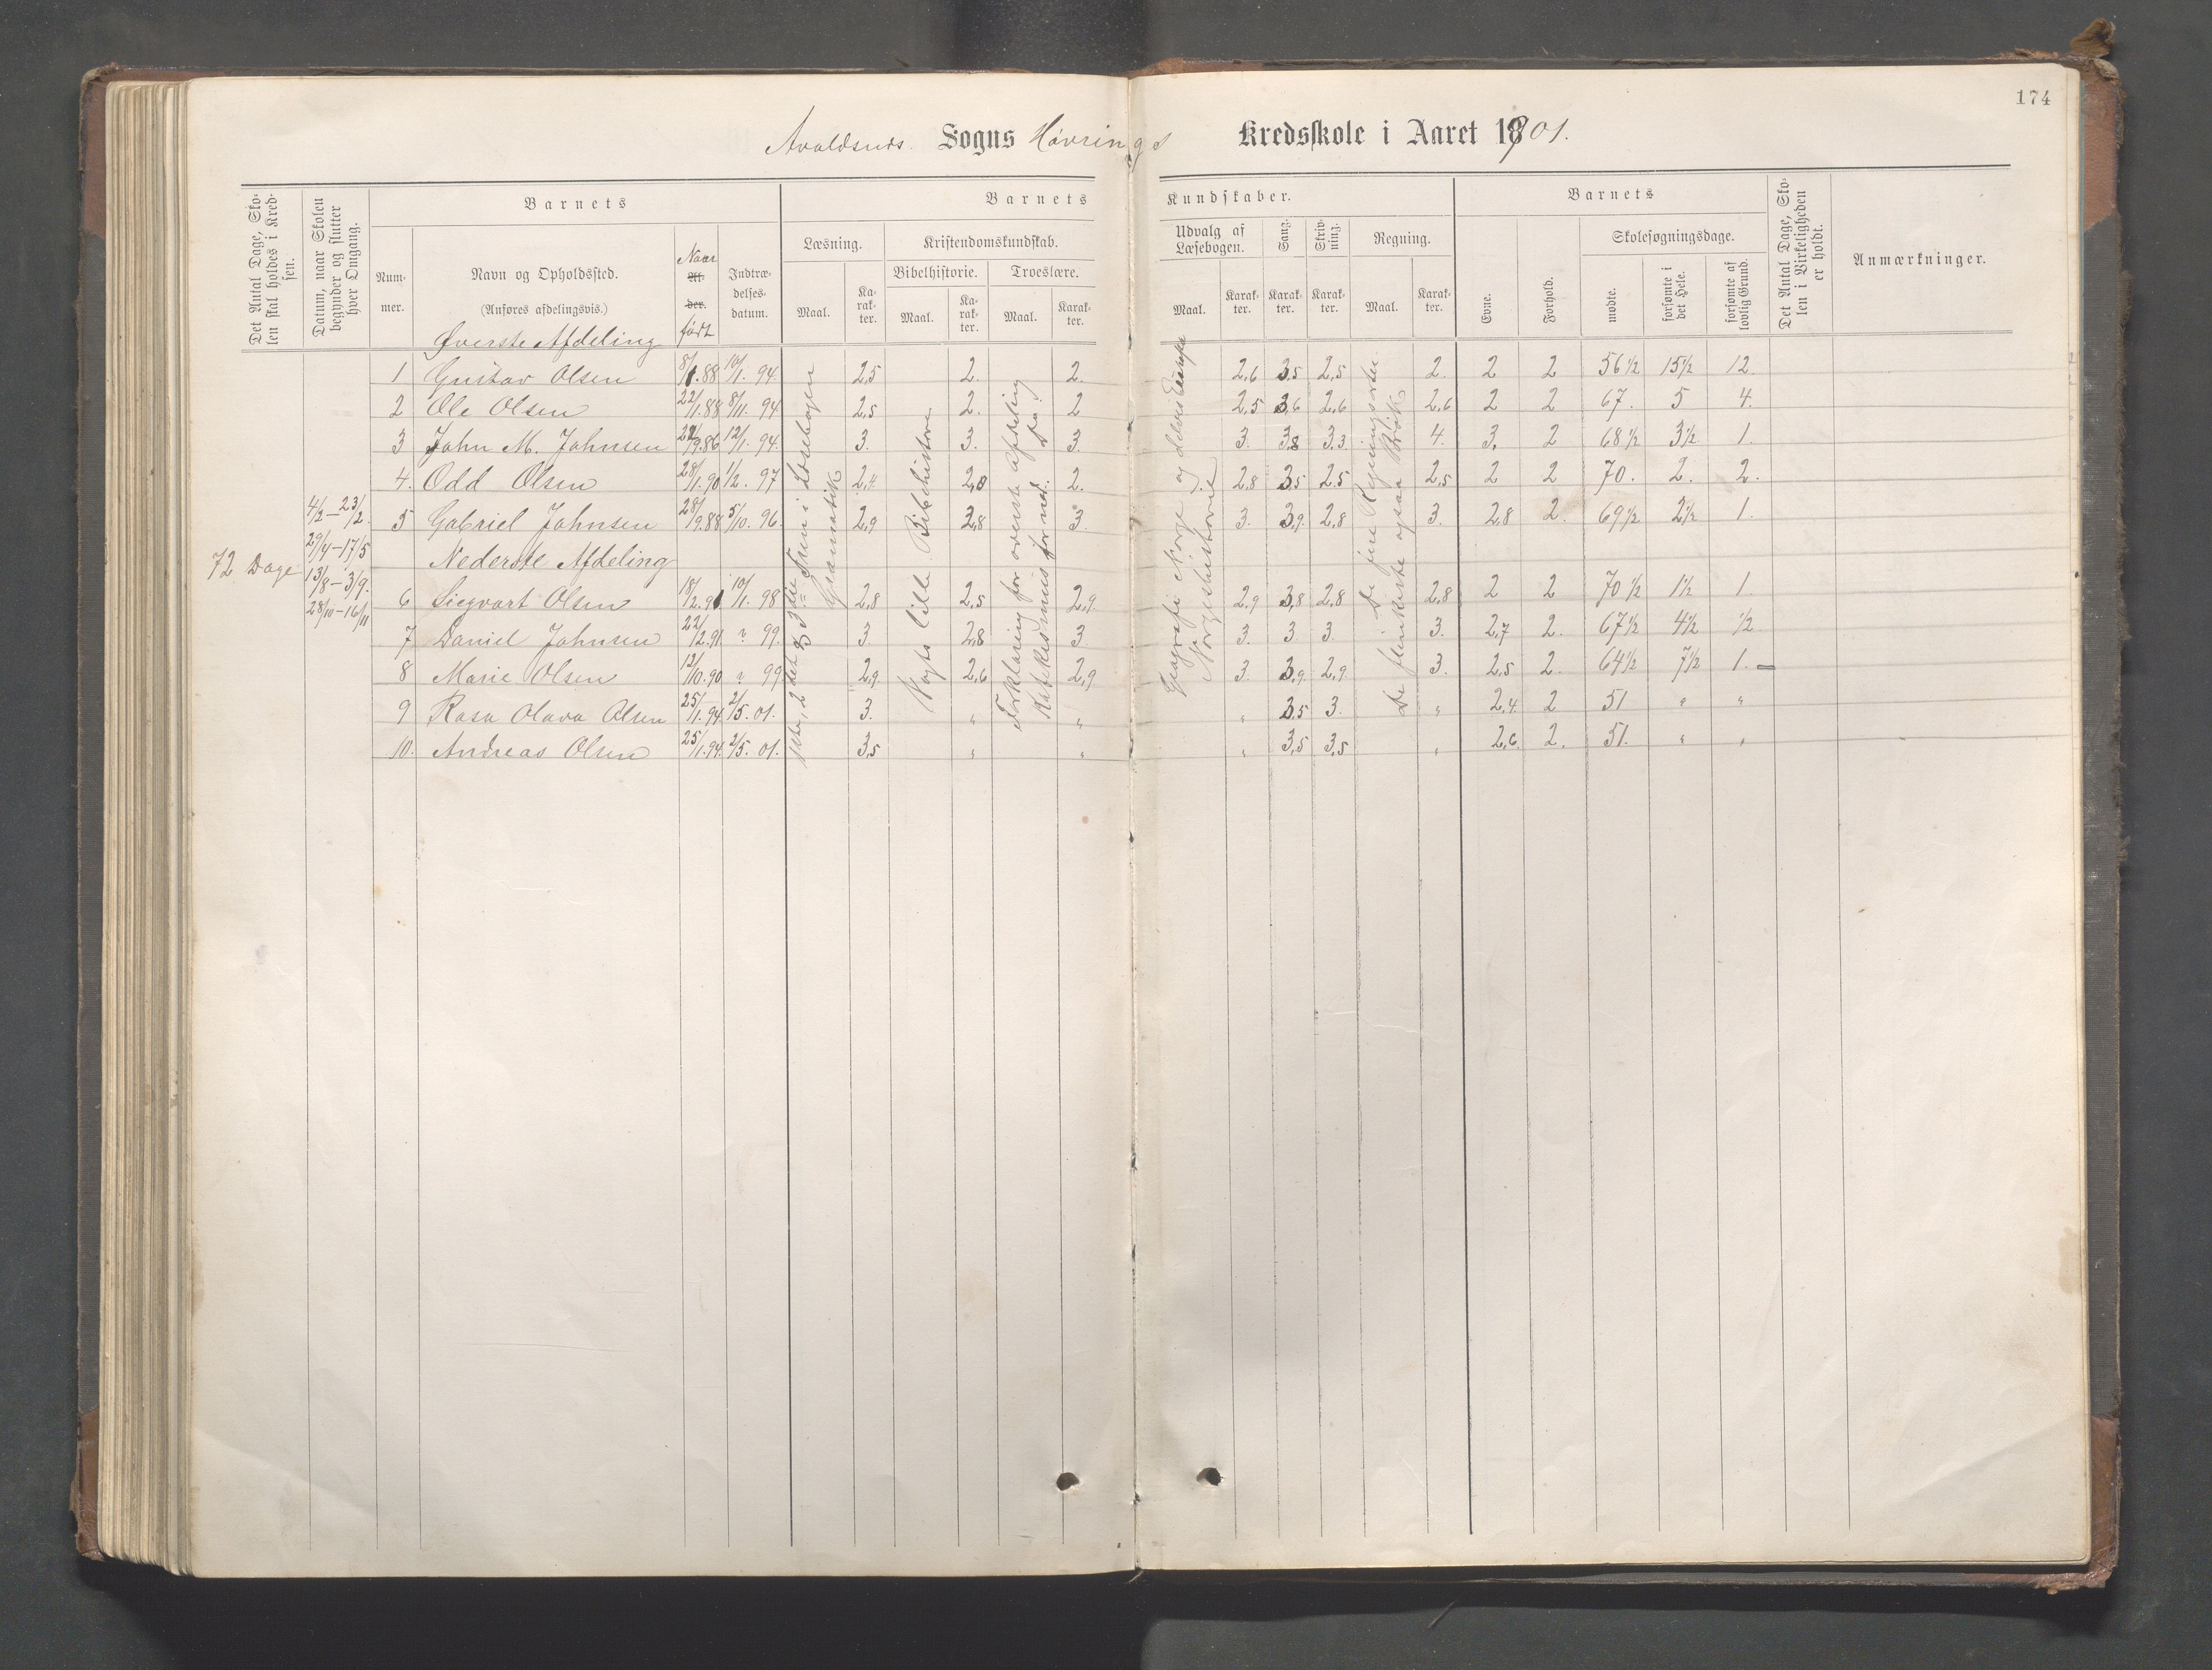 174
Avaldsnes Sogns Hövrings Kredsskole i Aaret 1901.
Det Antal Dage, Skolen skal holdes i Kredsen.
Datum, naar Skolen begynder og slutter hver Omgang.
Barnets
Nummer.
Navn og Opholdssted.
(Anføres afdelingsvis.)
Naar
Alder.
født
Indtrædelsesdatum.
Barnets Kundskaber.
Læsning.
Maal.
Karakter.
Kristendomskundskab.
Bibelhistorie.
Maal.
Karakter.
Troeslære.
Maal.
Karakter.
Udvalg af Læsebogen.
Maal.
Karakter.
Sang.
Karakter.
Skrivning.
Karakter.
Regning.
Maal.
Karakter.
Barnets
Evne.
Forhold.
Skolesøgningsdage.
mødte.
forsømte i det Hele.
forsømte af lovlig Grund.
Det Antal Dage, Skolen i Virkeligheden er holdt.
Anmærkninger.
72 Dage
4/2–23/2.
29/4–17/5
13/8–3/9.
28/10–16/11
Øverste Afdeling
1 Gustav Olsen 8/1.88 10/1. 94. 2,5 2. 2. 2,6 3,5 2,5 2. 2 2 56 1/2 15 1/2 12.
2 Ole Olsen 22/1.88 8/11. 94 2,5 2. 2 2,5 3,6 2,6 2,6 2 2 67. 5 4.
3 John M. Johnsen 9.86 12/1. 94. 3. 3. 3. 3. 3,8 3,3. 4. 3, 2 68 1/2 3 1/2 1.
4. Odd Olsen 28/1.90 1/2. 97 2,4. 2,8 2. 2,8 3,5 2,5 2,5 2 2 70. 2. 2.
5 Gabriel Johnsen 28/9.88 5/10. 96. 2,9 2,8 3. 3. 3,9. 2,8 3. 2,8 2. 69 1/2 2 1/2 1.
Nederste Afdeling
6 Siegvart Olsen 18/2.91 10/1. 98 2,8 2,5 2,9. 2,9 3,8 2,8 2,8 2 2 70 1/2 1 1/2 1.
7 Daniel Johnsen 22/2.91 " 99. 3. 2,8 3. 3. 3 3. 3. 2,7 2. 67 1/2 4 1/2 1/2
8 Marie Olsen 12/10.90 " 99 2,9. 2,6 2,9. 3. 3,9. 2,9. 3. 2,5 2. 64 1/2 7 1/2 1.
9 Rasa Olava Olsen 25/1.94. 2/5. 01. 3. " " " 3,5 3. " 2,4. 2 51 " "
10. Andreas Olsen 25/1.94. 2/5. 01. 3,5 " " " 3,5 3,5 " 2,6. 2. 51. " "
1ste, 2det og 3die Trin i Læsebogen
Gramatik
Vogts lille Bibelhistorie
Forklaring for øverste afdeling
Katekismus for ned. Do.
Geografi Norge og deles Europa
Norgeshistorie
De fire Regningsarter
De flinkeste ogsaa Brök